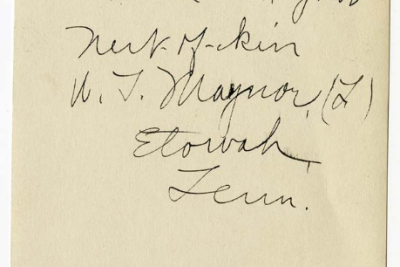 Next-of-kin
W. T. Maynor, (F)
Etowah,
Tenn.